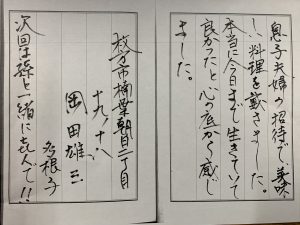 息子夫婦の招待で、美味
しい料理を戴きました。
本当に今日まで生きていて
良かったと心の底から感じ
ました。
枚方市楠葉朝日二丁目
十九ノ十六
岡田雄三
多根子
次回は孫と一緒に喜んで!!